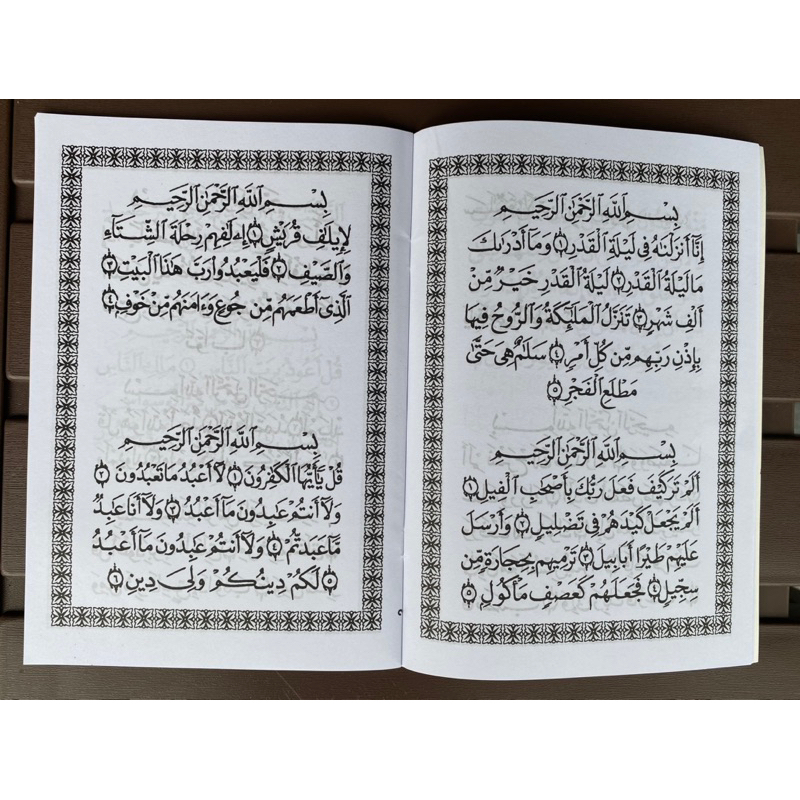 بِسْمِ ٱللَّهِ ٱلرَّحْمَٰنِ ٱلرَّحِيمِ
إِنَّآ أَنزَلْنَٰهُ فِى لَيْلَةِ ٱلْقَدْرِ ١ وَمَآ أَدْرَىٰكَ
مَا لَيْلَةُ ٱلْقَدْرِ ٢ لَيْلَةُ ٱلْقَدْرِ خَيْرٌ مِّنْ
أَلْفِ شَهْرٍ ٣ تَنَزَّلُ ٱلْمَلَٰٓئِكَةُ وَٱلرُّوحُ فِيهَا
بِإِذْنِ رَبِّهِم مِّن كُلِّ أَمْرٍ ٤ سَلَٰمٌ هِىَ حَتَّىٰ
مَطْلَعِ ٱلْفَجْرِ ٥
بِسْمِ ٱللَّهِ ٱلرَّحْمَٰنِ ٱلرَّحِيمِ
أَلَمْ تَرَ كَيْفَ فَعَلَ رَبُّكَ بِأَصْحَٰبِ ٱلْفِيلِ ١
أَلَمْ يَجْعَلْ كَيْدَهُمْ فِى تَضْلِيلٍ ٢ وَأَرْسَلَ
عَلَيْهِمْ طَيْرًا أَبَابِيلَ ٣ تَرْمِيهِم بِحِجَارَةٍ مِّن
سِجِّيلٍ ٤ فَجَعَلَهُمْ كَعَصْفٍ مَّأْكُولٍۭ ٥
بِسْمِ ٱللَّهِ ٱلرَّحْمَٰنِ ٱلرَّحِيمِ
لِإِيلَٰفِ قُرَيْشٍ ١ إِۦلَٰفِهِمْ رِحْلَةَ ٱلشِّتَآءِ
وَٱلصَّيْفِ ٢ فَلْيَعْبُدُوا۟ رَبَّ هَٰذَا ٱلْبَيْتِ ٣
ٱلَّذِىٓ أَطْعَمَهُم مِّن جُوعٍ وَءَامَنَهُم مِّنْ خَوْفٍۭ ٤
بِسْمِ ٱللَّهِ ٱلرَّحْمَٰنِ ٱلرَّحِيمِ
قُلْ يَٰٓأَيُّهَا ٱلْكَٰفِرُونَ ١ لَآ أَعْبُدُ مَا تَعْبُدُونَ ٢
وَلَآ أَنتُمْ عَٰبِدُونَ مَآ أَعْبُدُ ٣ وَلَآ أَنَا۠ عَابِدٌ
مَّا عَبَدتُّمْ ٤ وَلَآ أَنتُمْ عَٰبِدُونَ مَآ أَعْبُدُ
٥ لَكُمْ دِينُكُمْ وَلِىَ دِينِ ٦